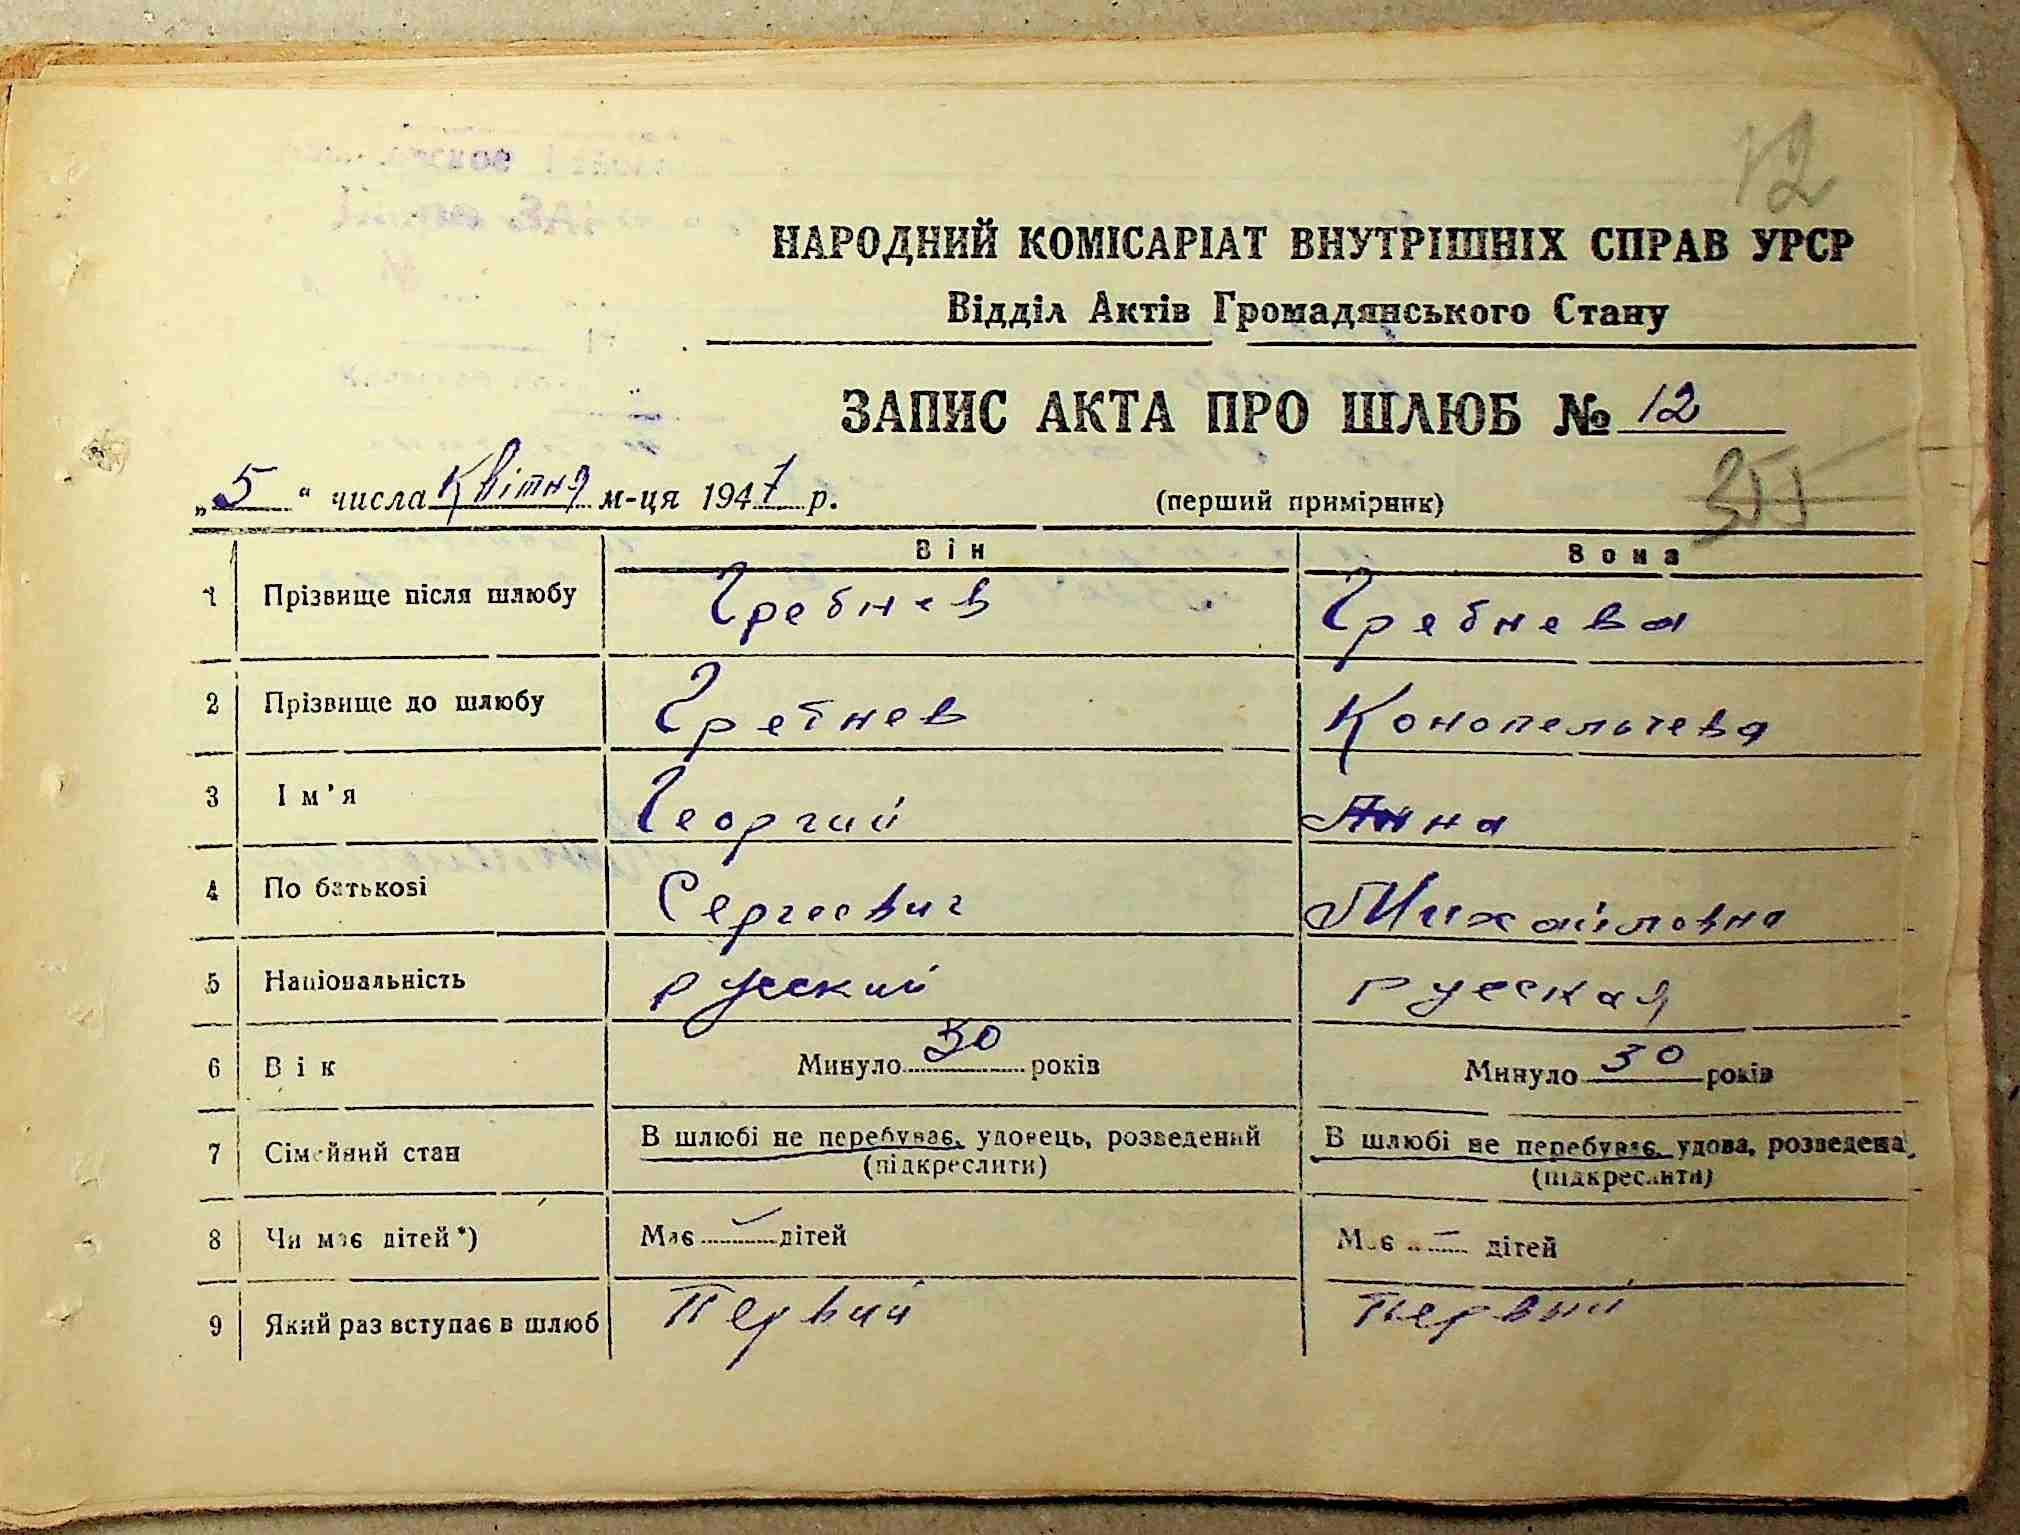 12
НАРОДНИЙ КОМІСАРІАТ ВНУТРІШНІХ СПРАВ УРСР
Відділ Актів Громадянського Стану
ЗАПИС АКТА ПРО ШЛЮБ № 12
„5" числа Квітня м-ця 1947 р. (перший примірник)
Він Вона
1 Прізвище після шлюбу Гребнев Гребнева
2 Прізвище до шлюбу Гребнев Конопельчева
3 Ім'я Георгий Анна
4 По батькові Сергеевич Михайловна
5 Національність русский русская
6 Вік Минуло 30 років Минуло 30 років
7 Сімейний стан В шлюбі не перебуває, удовець, розведений (підкреслити) В шлюбі не перебуває, удова, розведена (підкреслити)
8 Чи має дітей *) Має — дітей Має — дітей
9 Який раз вступає в шлюб Первий Первый